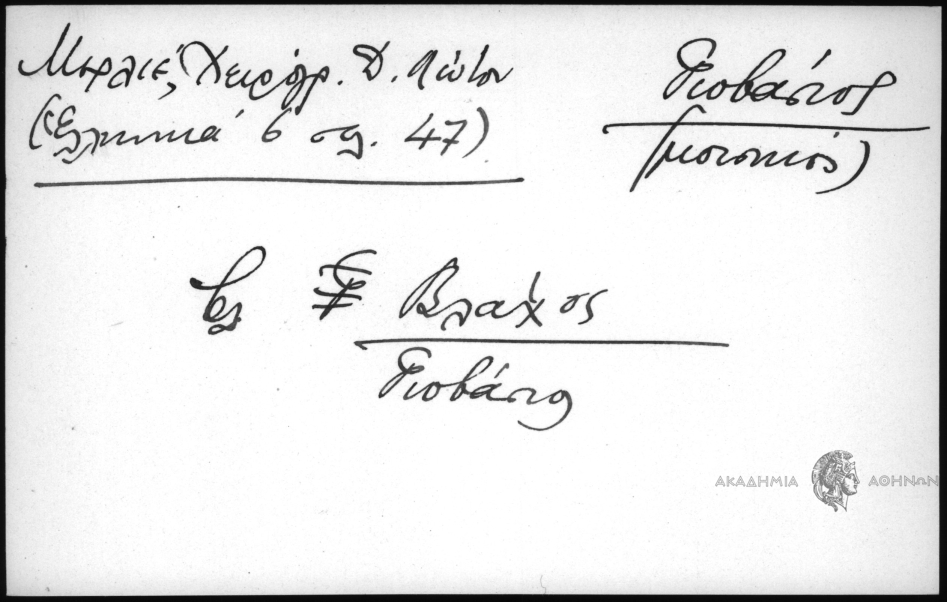 Μερλιέ, Χειρόγρ. Δ. Λώτου
(Ἑλληνικά 6 σελ. 47)
Γιοβάνος
(μουσικός)
βλ Βλάχος
Γιοβάνος
ΑΚΑΔΗΜΙΑ ΑΘΗΝΩΝ